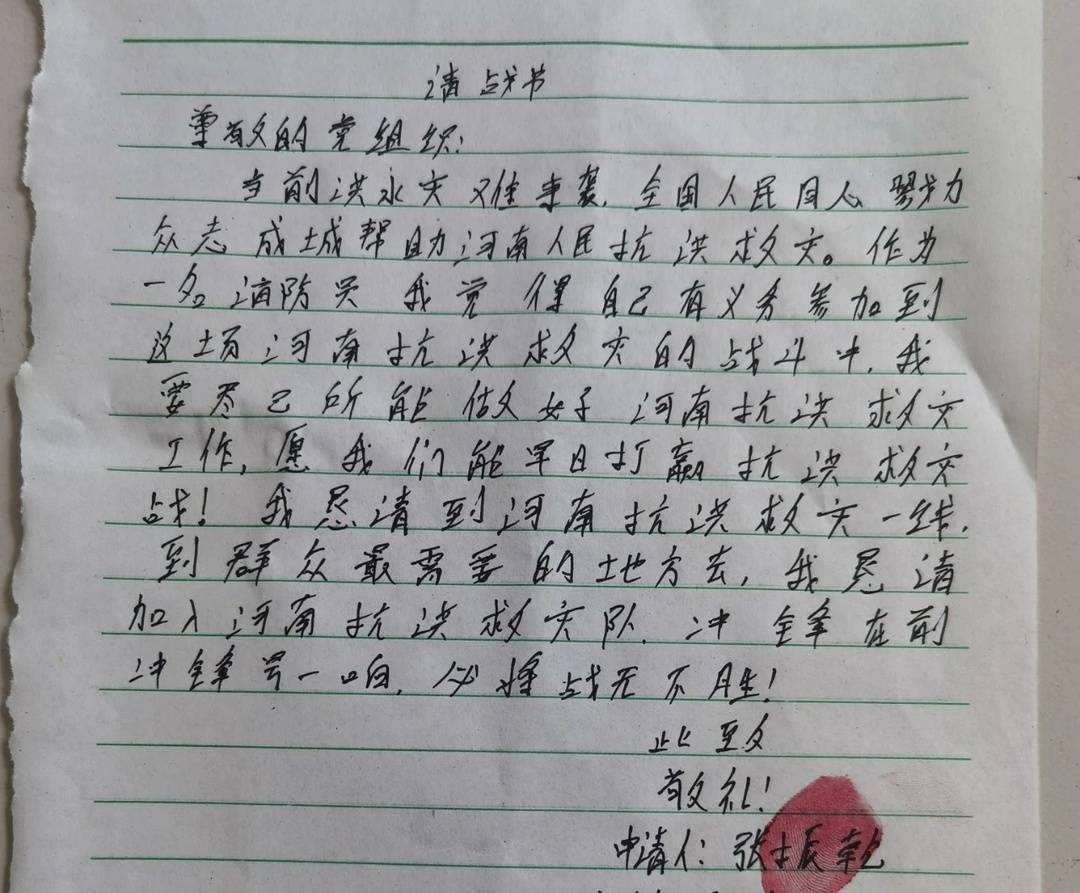 请战书
尊敬的党组织:
当前洪水灾难来袭,全国人民同心努力
众志成城帮助河南人民抗洪救灾。作为
一名消防员我觉得自己有义务参加到
这场河南抗洪救灾的战斗中,我
要尽己所能做好河南抗洪救灾
工作,愿我们能早日打赢抗洪救灾
战!我恳请到河南抗洪救灾一线,
到群众最需要的地方去,我恳请
加入河南抗洪救灾队,冲锋在前
冲锋号一响,必将战无不胜!
此致
敬礼!
申请人:张振乾